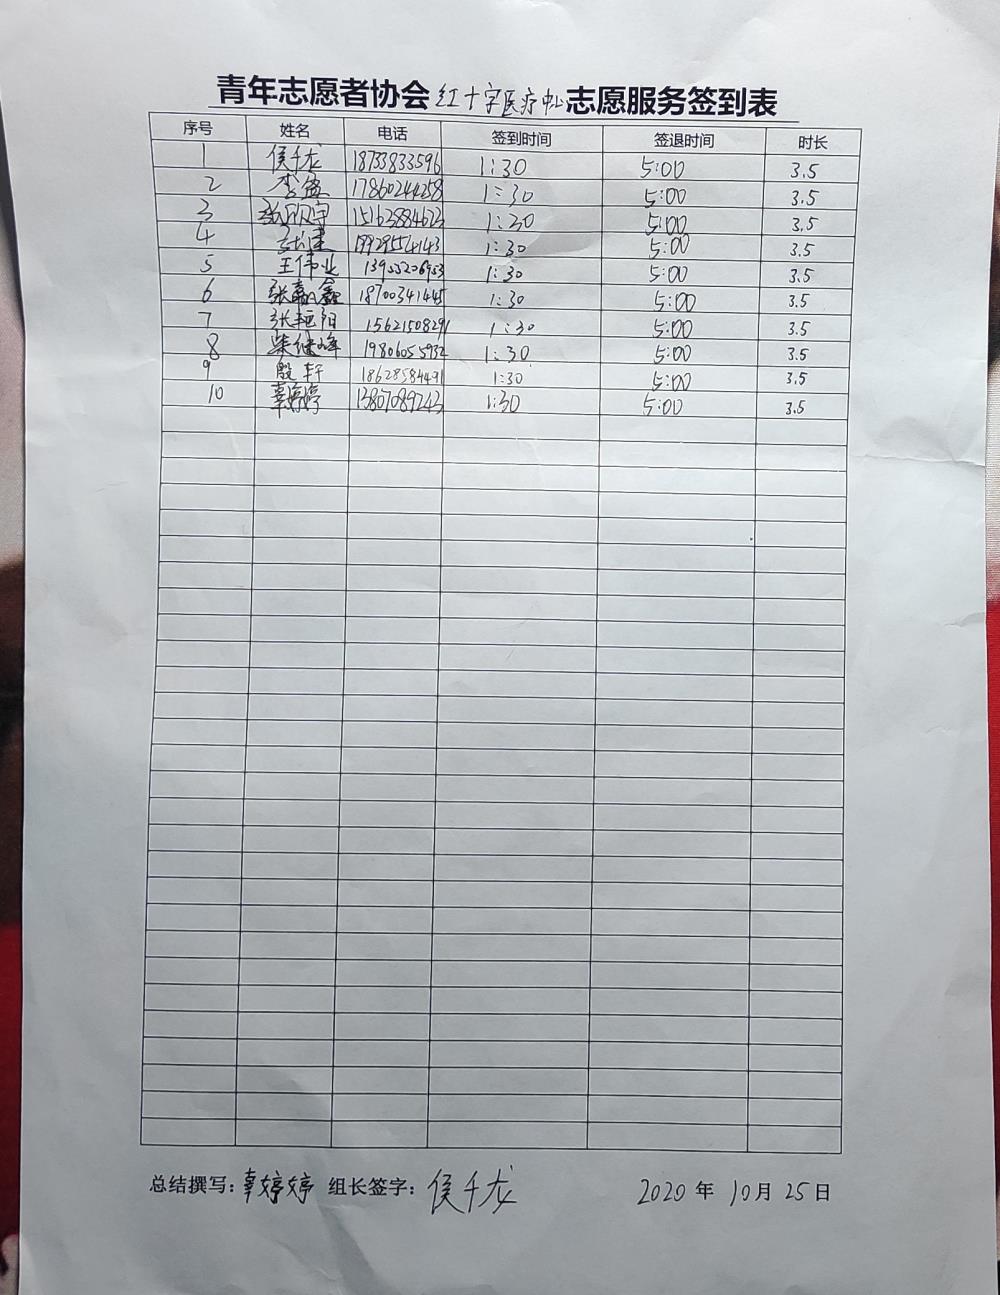 青年志愿者协会红十字医疗中心志愿服务签到表
序号 姓名 电话 签到时间 签退时间 时长
1 侯千龙 18733833596 1:30 5:00 3.5
2 李鑫 17860244258 1:30 5:00 3.5
3 1:30 5:00 3.5
4 1:30 5:00 3.5
5 王伟业 1:30 5:00 3.5
6 张赢鑫 18700341445 1:30 5:00 3.5
7 张艳阳 15621508291 1:30 5:00 3.5
8 柴继峰 19806055932 1:30 5:00 3.5
9 殷轩 18628584491 1:30 5:00 3.5
10 辜婷婷 13807089243 1:30 5:00 3.5
总结撰写：辜婷婷 组长签字：侯千龙 2020年10月25日